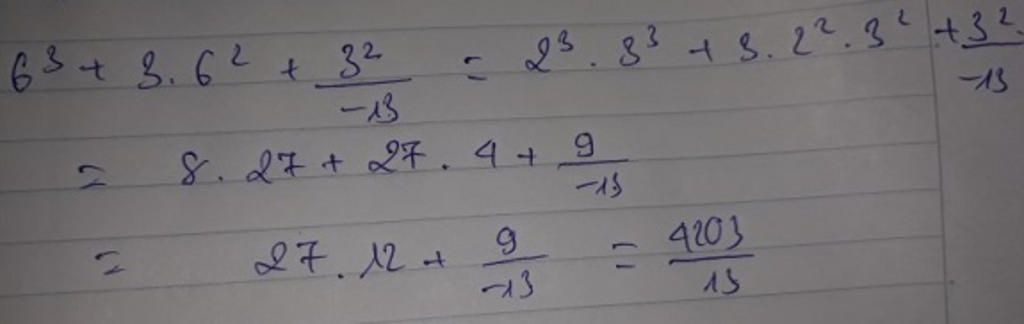 6³ + 3.6² + 3²/-13 = 2³.3³ + 3.2².3² + 3²/-13
= 8.27 + 27.4 + 9/-13
= 27.12 + 9/-13 = 4203/13